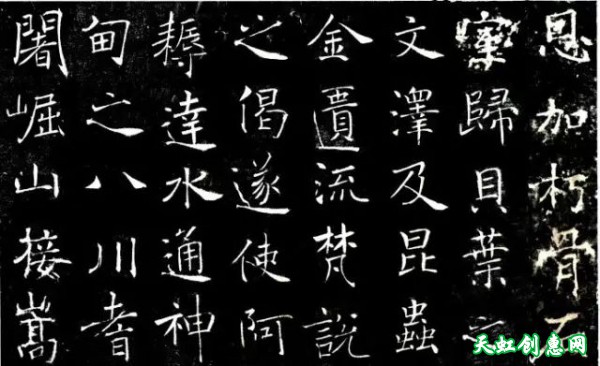 恩加朽骨石
室歸貝葉之
文澤及昆蟲
金匱流梵說
之偈遂使阿
耨達水通神
甸之八川耆
闍崛山接嵩
天虹创惠网